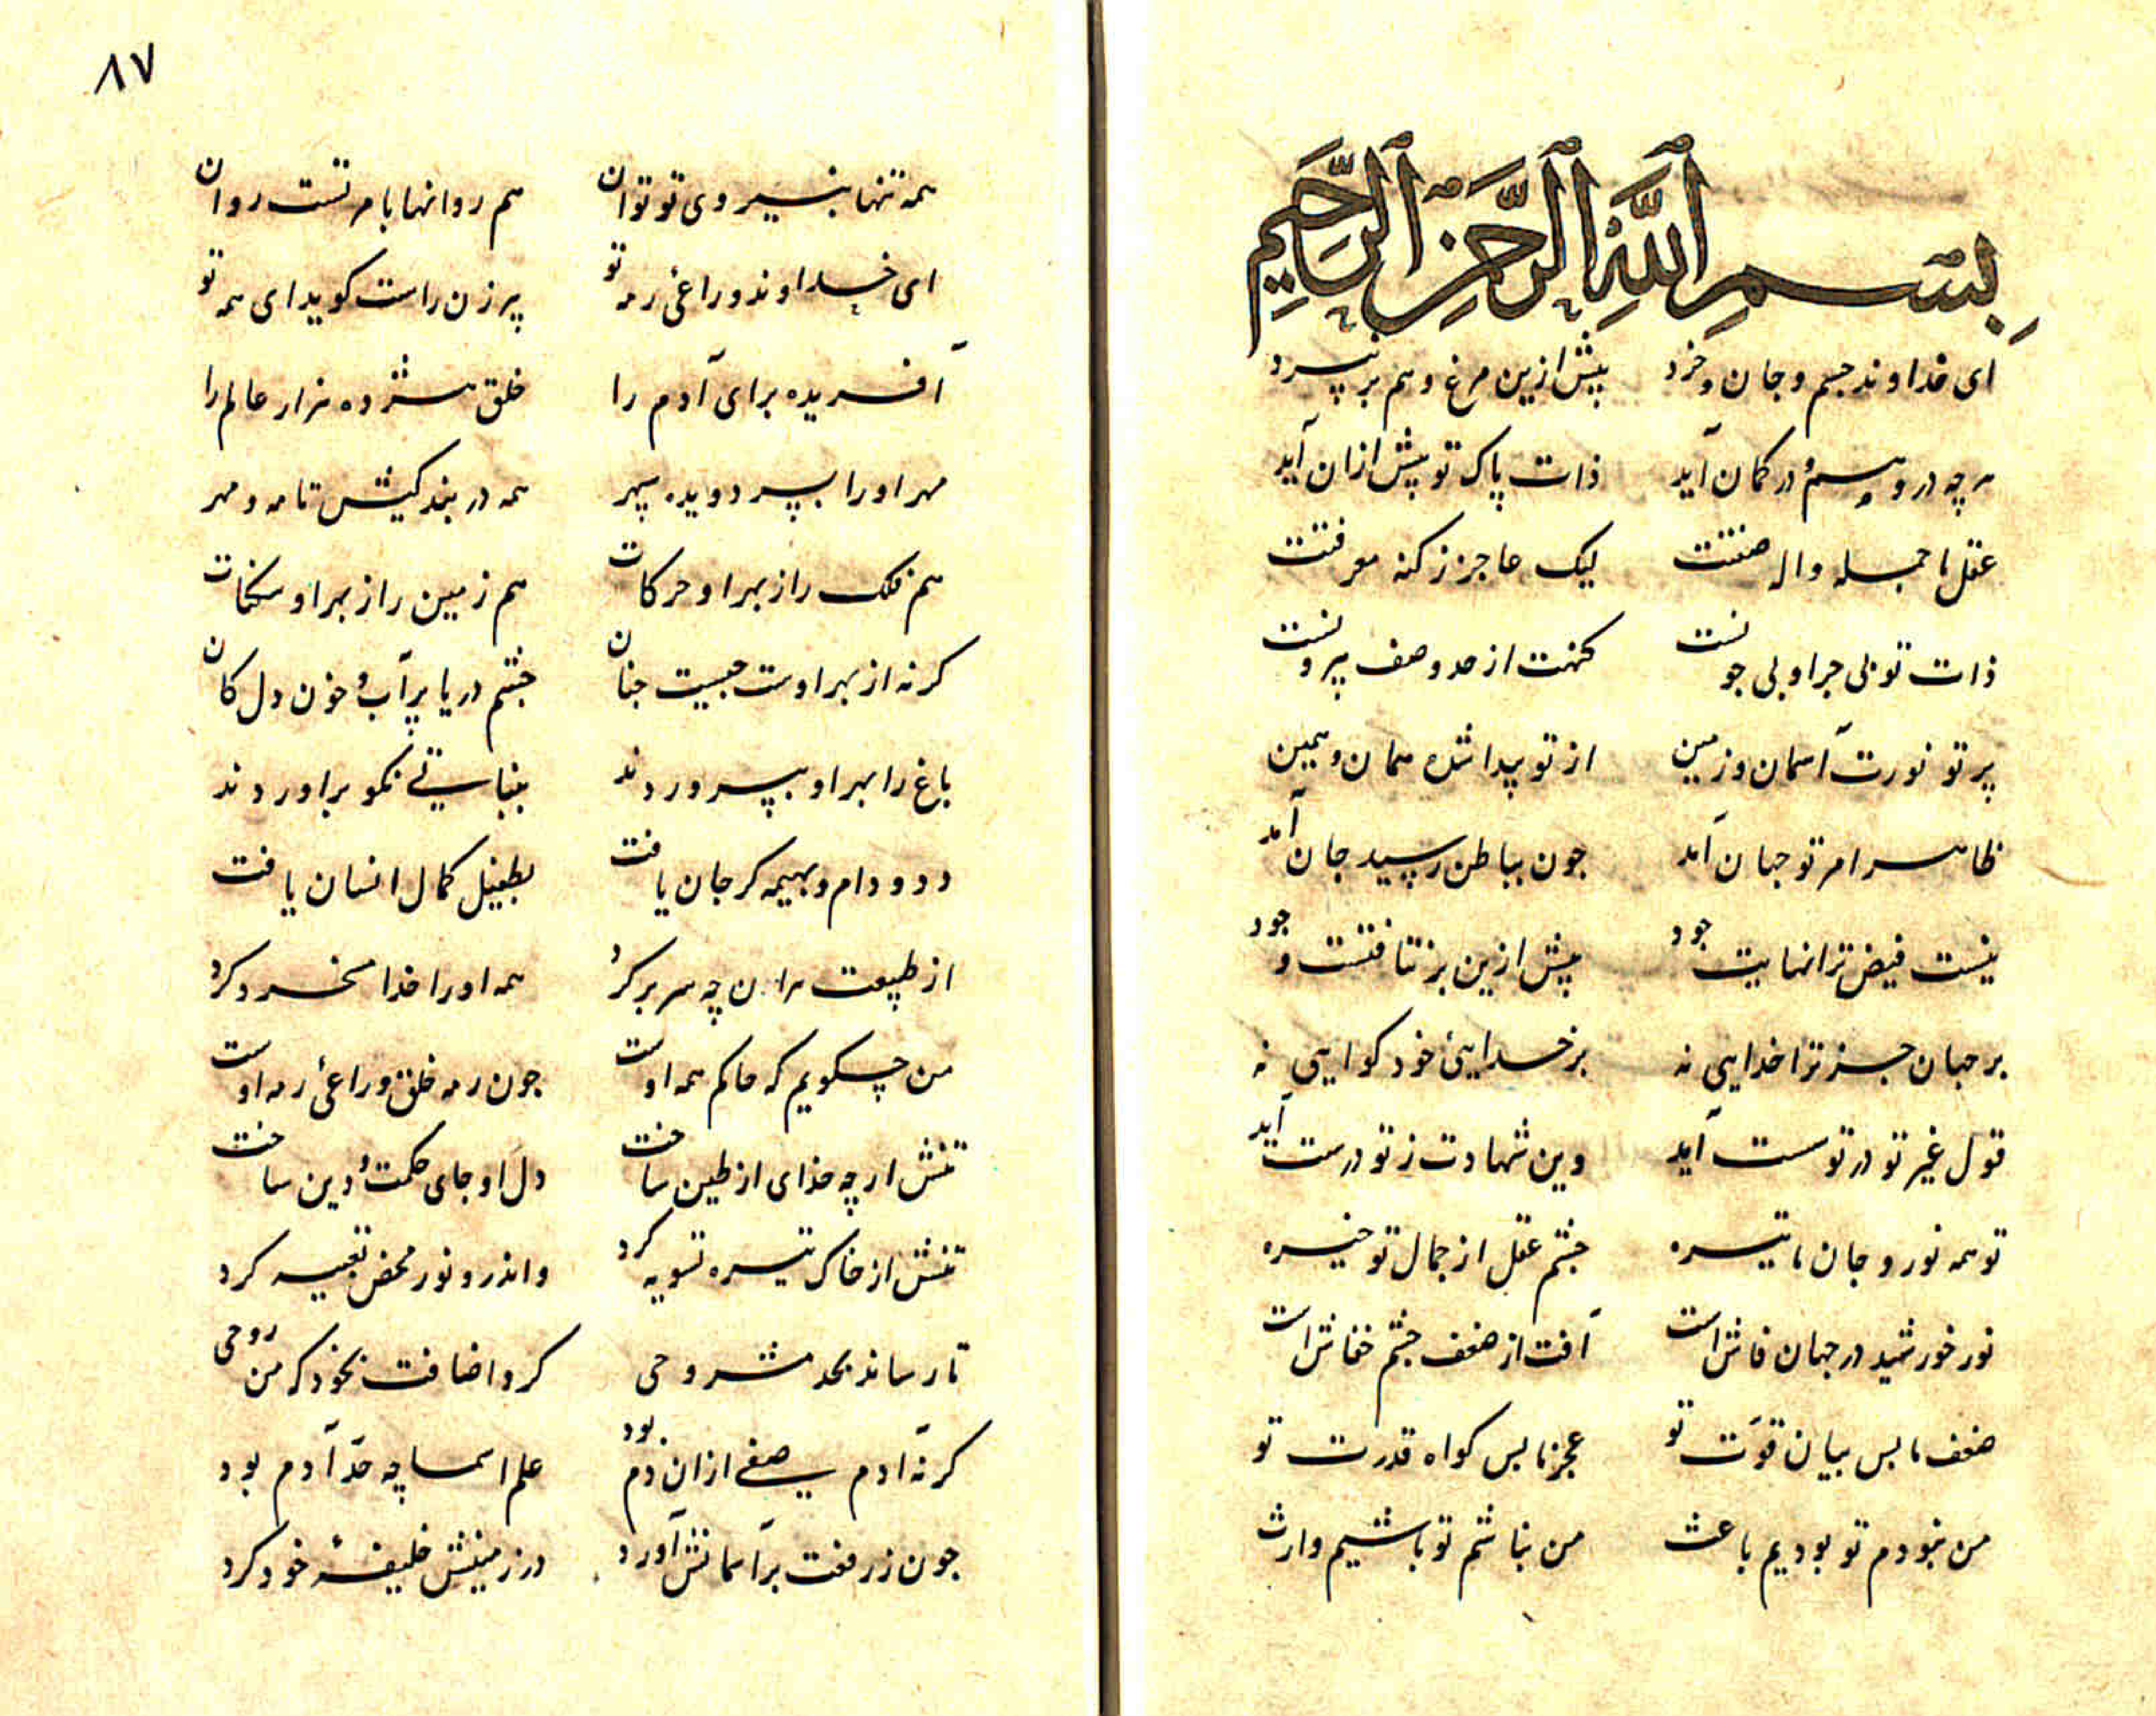 بِسْمِ ٱللَّهِ ٱلرَّحْمَٰنِ ٱلرَّحِيمِ
ای خداوند جسم و جان و خرد بیش ازین مرغ وهم بر نپرد
هر چه در وهم در کمان آید ذات پاک تو پیش ازان آید
عقل ما جمله واله صفتت لیک عاجز ز کنه معرفتت
ذات تو بی چرا و بی چونست کنهت از حد وصف بیرونست
پرتو نورت آسمان و زمین از تو پیدا شده همان و همین
ظاهر امر تو جهان آمد جون بباطن رسید جان آمد
نیست فیض ترا نهایت جود بیش ازین بر نتافتست وجود
بر جهان جز ترا خدایی نه بر خدایئ خود کواهی نه
قول غیر تو در تو سست آید وین شهادت ز تو درست آید
تو همه نور و جان ما تیره جشم عقل از جمال تو خیره
نور خورشید در جهان فاش است آفت از ضعف جشم خفاش است
ضعف ما بس بیان قوّت تو عجز ما بس کواه قدرت تو
من نبودم تو بودیم باعث من نباشم تو باشیم وارث
۸۷
همه تنها بنیروی تو توان هم روانها بامر تست روان
ای خداوند و راعی رمه تو پیر زن راست کوید ای همه تو
آفریده برای آدم را خلق هشژده هزار عالم را
مهر او را بپرد دیده سپهر همه در بند کیش تا مه و مهر
هم فلک را ز بهر او حرکات هم زمین را ز بهر او سکنات
کرنه از بهر اوست جیست جنان جشم دریا پر آب و خون دل کان
باغ را بهر او بپروردند بنباتی نکو براوردند
دد و دام و بهیمه کر جان یافت بطفیل کمال انسان یافت
از طبیعت هران چه سر بر کرد همه او را خدا مسخر کرد
من چکویم که حاکم همه اوست جون رمه خلق و راعئ رمه اوست
تنش ار چه خدای از طین ساخت دل او جای حکمت و دین ساخت
تنش از خاک تیره تسویه کرد واندرو نور محض تعبیه کرد
تا رساند بحد مشروحی کرد اضافت بخود که من روحی
کرنه آدم صفی ازان دم بود علم اسما چه حدّ آدم بود
جون ز رفعت بر آسمانش آورد در زمینش خلیفهٔ خود کرد